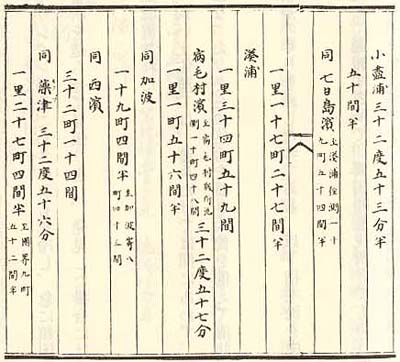 小盡浦 三十二度五十三分半
五十間半
同 七日島濱 至湊浦 一十九町五十四間半
一里一十七町二十七間半
湊浦
一里三十四町五十九間
宿毛村濱 至宿毛村 一十町四十八間 三十二度五十七分
一里一町五十六間半
同 加波
一十九町四間半 至加波 八町四十三間
同 西濱
三十二町一十四間
同 藻津 三十二度五十六分
一里二十七町四間半 至國界九町五十二間半